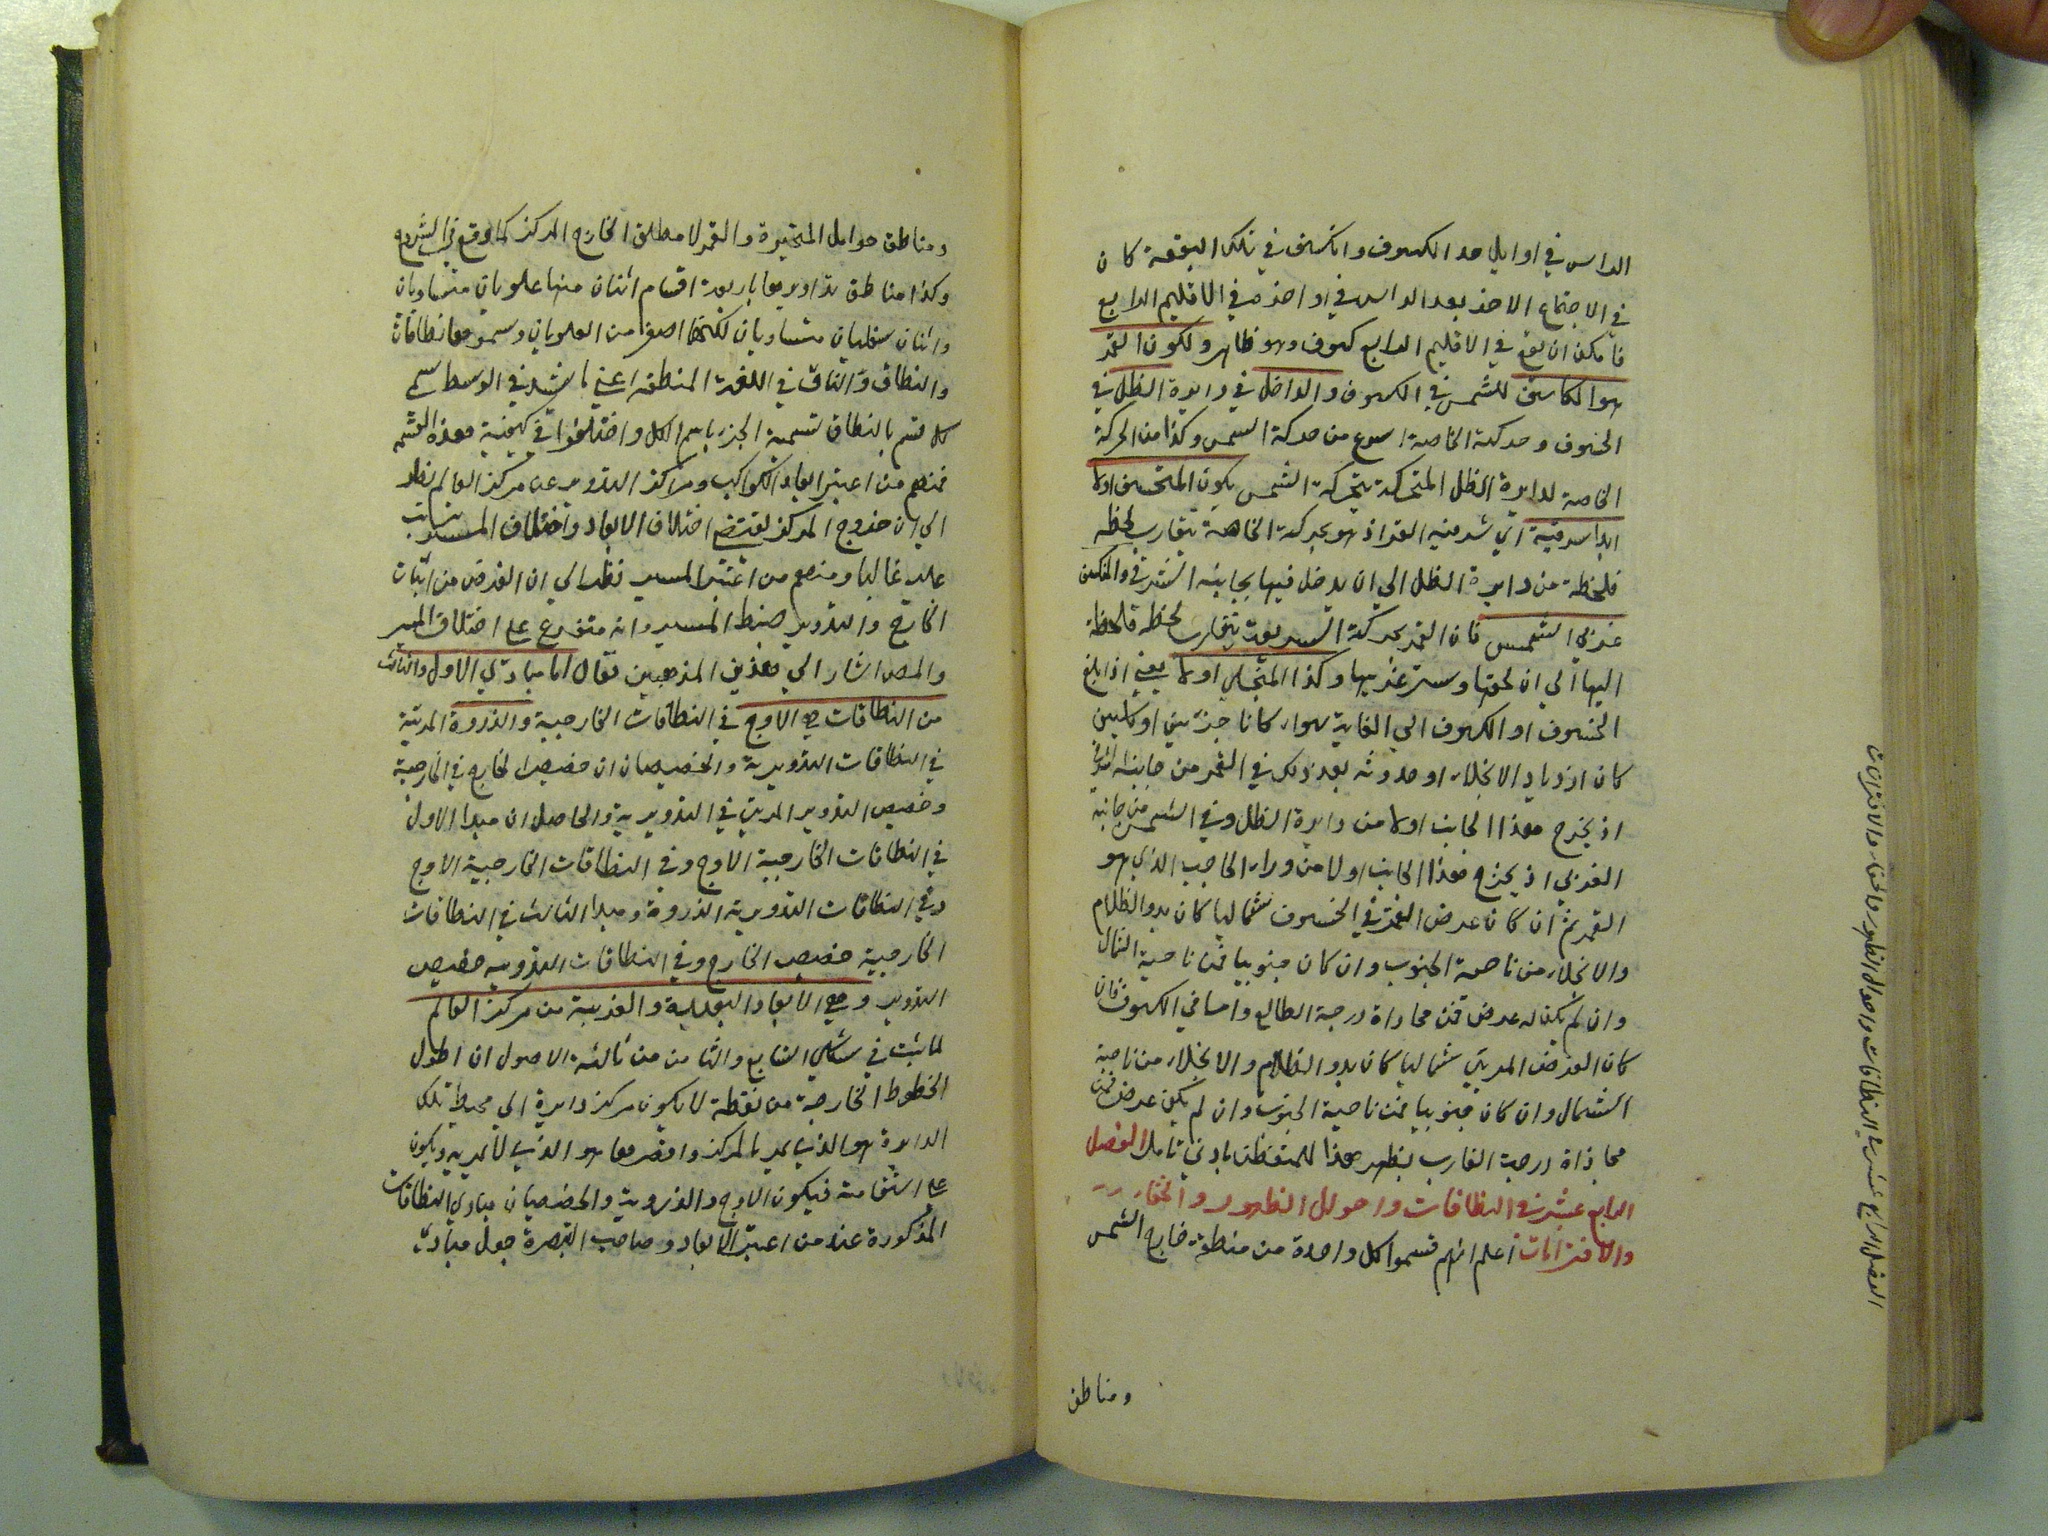 الراس في اوايل حد الكسوف وانكسف في تلك البقعة كان
في الاجتماع الاخر بعد الراس في اواخره في الاقليم الرابع
فامكن ان يقع في الاقليم الرابع كسوف وهو ظاهر ولكون القمر
هو الكاسف للشمس في الكسوف والداخل في دايرة الظل في
الخسوف وحركته الخاصة اسرع من حركة الشمس وكذا من الحركة
الخاصة لدايرة الظل المتحركة بحركة الشمس يكون المنخسف اولا
ابدا شرقيه اي شرقية القمر اذ هو بحركته الخاصة يتقارب لحظه
فلحظة من دايرة الظل الي ان يدخل فيها بجانبه الشرقي والمنكسف
غربي الشمس فان القمر بحركته السريعة يتقارب لحظه فلحظة
اليها الي ان لحقها وستر غربيها وكذا المنجلي اولا يعني اذا بلغ
الخسوف او الكسوف الي الغاية سواء كانا جزئيين او كليين
كان ازدياد الانجلاء او حدوثه بعد ذلك في القمر من جانبه الشرقي
اذ يخرج هذا الجانب اولا من دايرة الظل وفي الشمس من جانبه
الغربي اذ يخرج هذا الجانب اولا من وراء الحاجب الذي هو
القمر ثم ان كان عرض القمر في الخسوف شماليا كان بدو الظلام
والانجلاء من ناحية الجنوب وان كان جنوبيا فمن ناحية الشمال
وان لم يكن له عرض فمن محاذاة درجة الطالع واما في الكسوف فان
كان العرض المرئي شماليا كان بدو الظلام والانجلاء من ناحية
الشمال وان كان جنوبيا فمن ناحية الجنوب وان لم يكن عرض فمن
محاذاة درجة الغارب يظهر هذا للمتفطن بادني تامل الفصل
الرابع عشر في النطاقات واحوال الظهور والخفاء
والاقترانات اعلم انهم قسموا كل واحدة من منطقة خارج الشمس
ومناطق
الفصل الرابع عشر في النطاقات واحوال الظهور والخفاء والاقترانات
ومناطق حوامل المتحيرة والقمر لا مطلق الخارج المركز كما وقع في الشروح
وكذا مناطق تداويرها باربعة اقسام اثنان منها علويان متساويان
واثنان سفليان متساويان لكنهما اصغر من العلويان وسموها نطاقات
والنطاق في اللغة المنطقة اعني ما يشد في الوسط سمي
كل قسم بالنطاق تسمية الجزء باسم الكل واختلفوا في كيفية هذه القسمة
فمنهم من اعتبر ابعاد الكواكب ومراكز التدوير عن مركز العالم نظرا
الي ان خروج المركز يقتضي اختلاف الابعاد واختلاف المسير يترتب
عليه غالبا ومنهم من اعتبر المسير نظرا الي ان الغرض من اثبات
الخارج والتدوير ضبط المسير وانه متفرع علي اختلاف المسير
والمص اشار الي هذين المذهبين فقال اما مبادي الاول والثالث
من النطاقات هي الاوج في النطاقات الخارجية والذروة المرئية
في النطاقات التدويرية والحضيضان ان حضيض الخارج في الخارجية
وحضيض التدوير المرئي في التدويرية والحاصل ان مبدا الاول
في النطاقات الخارجية الاوج وفي النطاقات الخارجية الاوج
وفي النطاقات التدويرية الذروة ومبدا الثالث في النطاقات
الخارجية حضيض الخارج وفي النطاقات التدويريه حضيض
التدوير وهي الابعاد البعيدة والقريبة من مركز العالم
لما ثبت في شكلي السابع والثامن من ثالثة الاصول ان اطول
الخطوط الخارجة من نقطة لا يكون مركز دايرة الي محيط تلك
الدايرة هو الذي يمر بالمركز واقصرها هو الذي لا يمر به ويكون
علي استقامته فيكون الاوج والذروة والحضيضان مبادي النطاقات
المذكورة عند من اعتبر الابعاد وصاحب التبصرة جعل مبادي